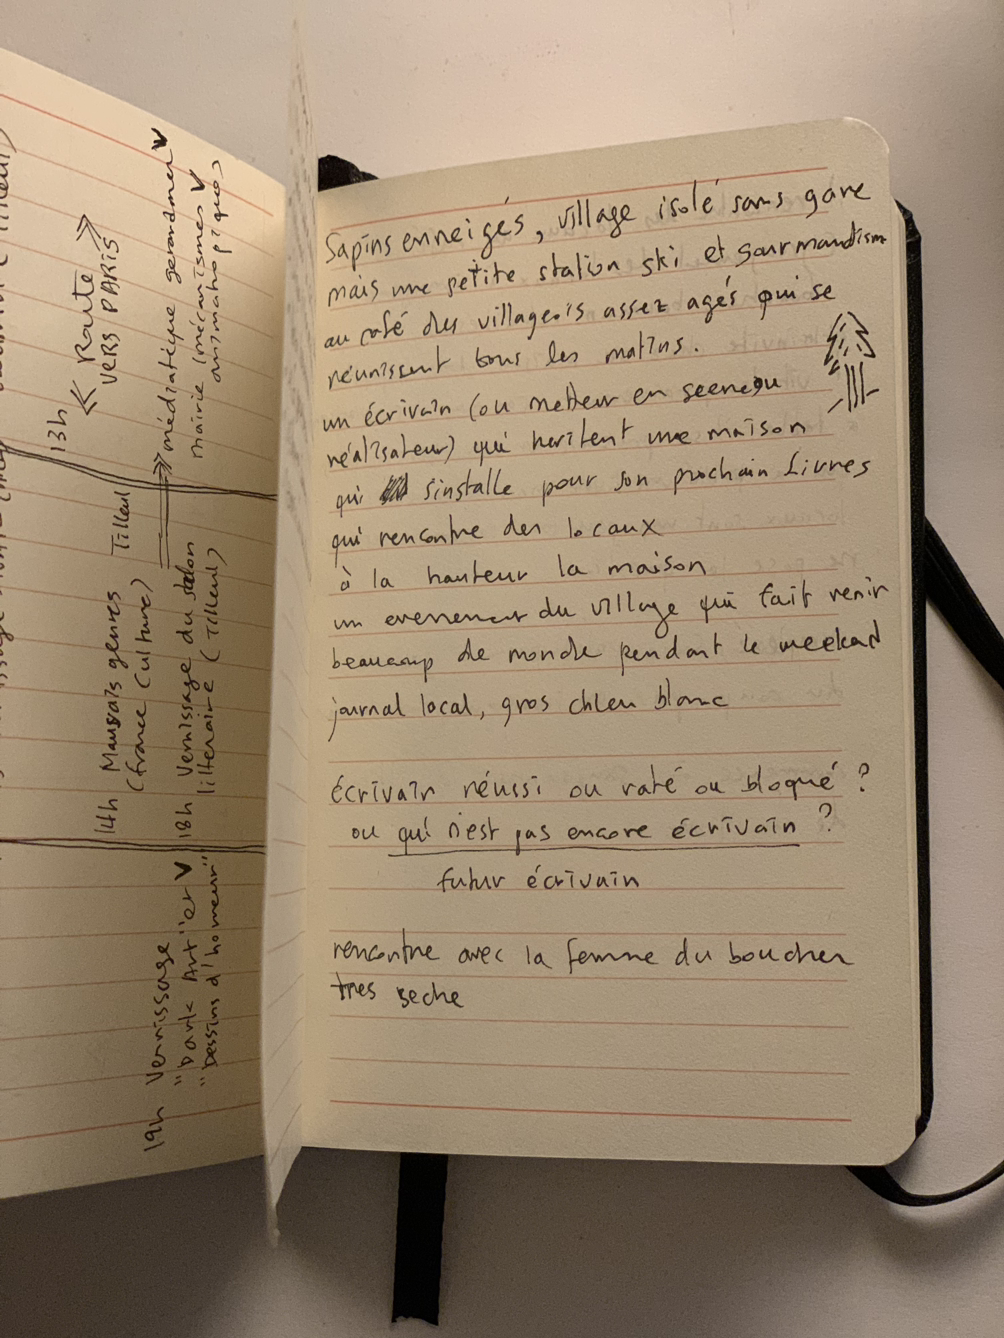 13h
<< Route >>
VERS PARIS
Tilleul
médiatique gerardmer
mairie (mécanismes
14h Mauvais genres
(france Culture)
18h Vernissage du salon
litteraire (Tilleul)
19h Vernissage
"bank Art" et
"Dessins d'humeur"
Sapins enneigés, village isolé sans gare
mais une petite station ski et gourmandism
au café des villageois assez agés qui se
réunissent tous les matins.
un écrivain (ou metteur en scene ou
réalisateur) qui heritent une maison
qui sinstalle pour son prochain Livres
qui rencontre des locaux
à la hauteur la maison
un evenement du village qui fait venir
beaucoup de monde pendant le weekend
journal local, gros chien blanc
écrivain réussi ou raté ou bloqué ?
ou qui n'est pas encore écrivain ?
futur écrivain
rencontre avec la femme du boucher
tres seche